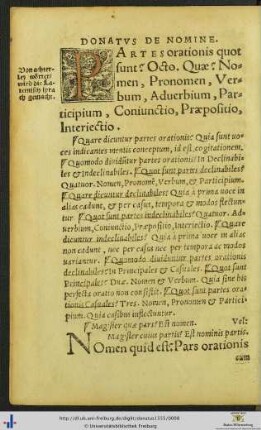 DONATVS DE NOMINE.
PARTES orationis quot
sunt? Octo. Quæ? No-
men, Pronomen, Ver-
bum, Aduerbium, Par-
ticipium, Coniunctio, Præpositio,
Interiectio.
Von achter-
ley wörter
wird die La-
teinisch sprach
gemacht.
Quare dicuntur partes orationis? Quia sunt uo-
ces indicantes mentis conceptum, id est, cogitationem.
Quomodo diuiduntur partes orationis? In Declinabi-
les & indeclinabiles. Quot sunt partes declinabiles?
Quatuor. Nomen, Pronomē, Verbum, & Participium.
Quare dicuntur declinabiles? Quia à prima uoce in
alias cadunt, & per casus, tempora & modos flectun-
tur. Quot sunt partes indeclinabiles? Quatuor. Ad-
uerbium, Coniunctio, Præpositio, Interiectio. Quare
dicuntur indeclinabiles? Quia à prima uoce in aliam
non cadunt, nec per casus nec per tempora ac modos
uariantur. Quomodo diuiduntur partes orationis
declinabiles? In Principales & Casuales. Quot sunt
Principales? Duæ. Nomen & Verbum. Quia sine his
perfecta oratio non consistit. Quot sunt partes ora-
tionis Casuales? Tres. Nomen, Pronomen & Partici-
pium. Quia casibus inflectuntur.
Magister quæ pars? Est nomen. Vel:
Magister cuius partis? Est nominis partis.
Nomen quid est? Pars orationis
cum
http://dl.ub.uni-freiburg.de/diglit/donatus1555/0006
© Universitätsbibliothek Freiburg